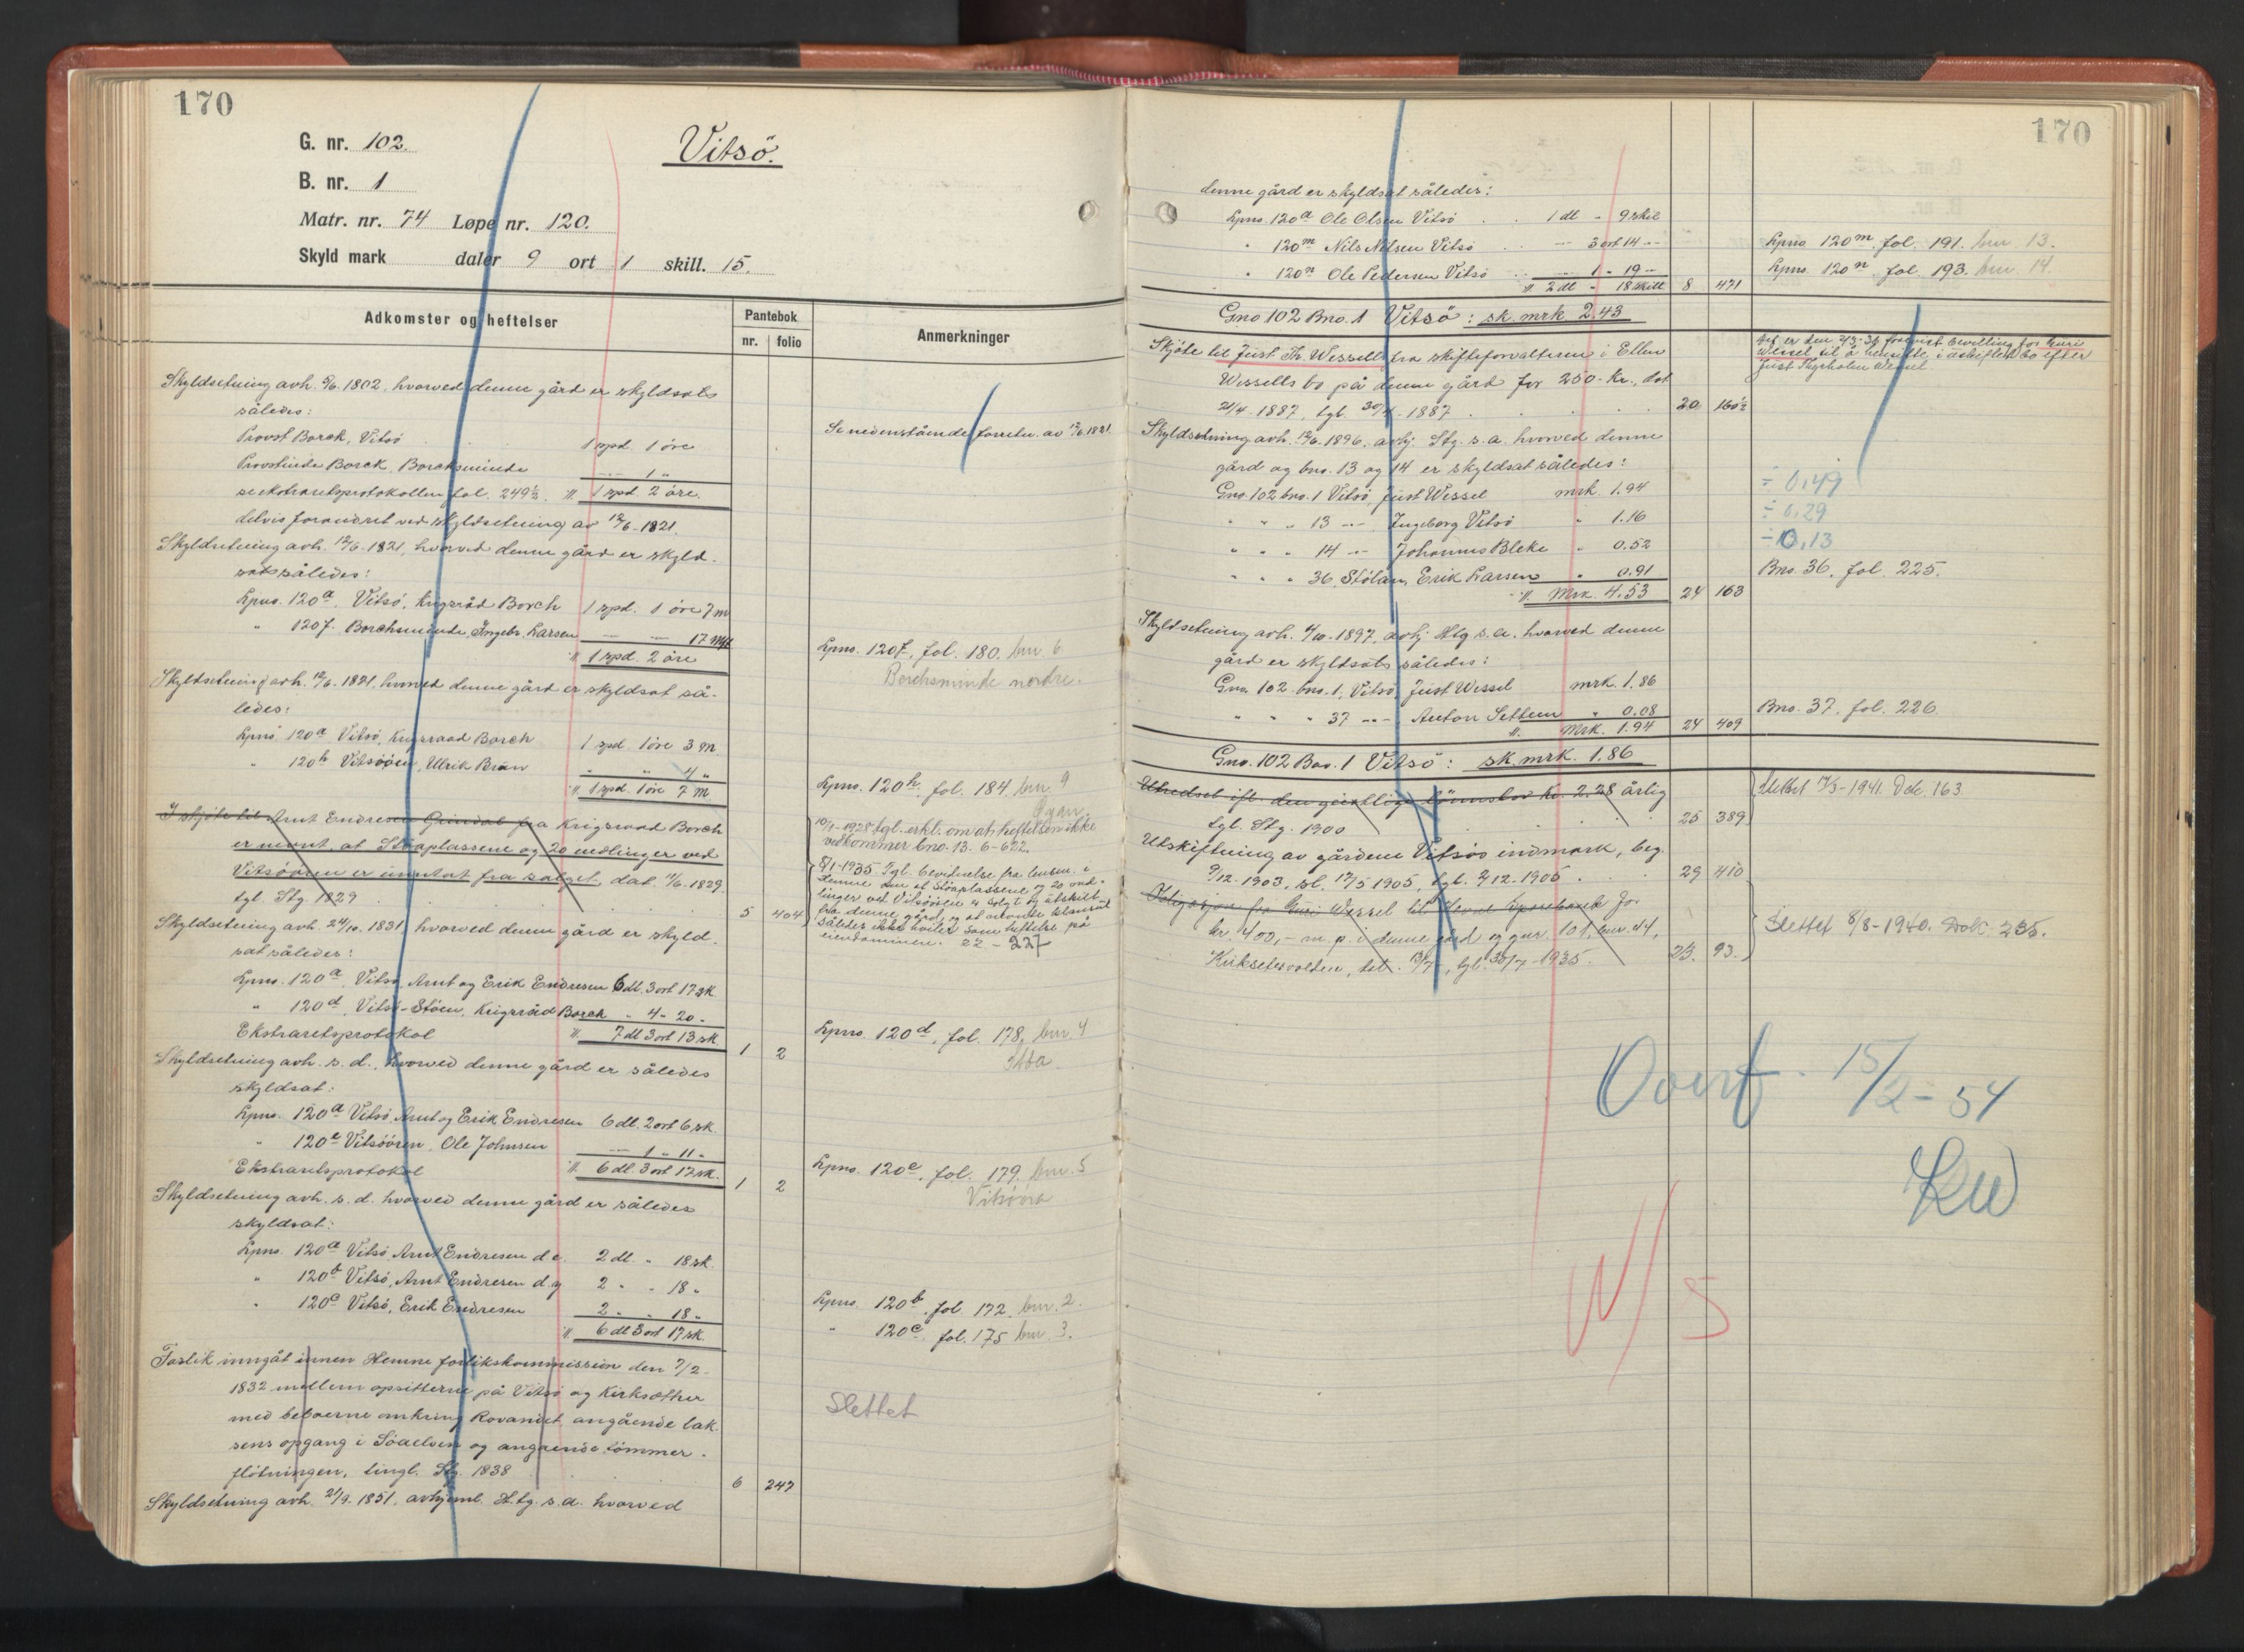 170
G. nr. 102.
Vitsö.
B. nr. 1
Matr. nr. 74 Løpe nr. 120.
Skyld mark daler 9 ort 1 skill. 15.
Adkomster og heftelser
Pantebok
nr. folio
Anmerkninger
Skyldsetning avh. 9/6. 1802, hvorved denne gård er skyldsats
således:
Provst Borch, Vitsö 1 spd. 1 öre
Se nedenstående forretn. av 12/6.1821.
Provstinde Borck, Borchsminde 1 "
se ekstraretsprotokollen fol. 249½. 1 spd. 2 öre.
delvis forandret ved skyldsetning av 12/6-1821.
Skyldsetning avh. 12/6-1821, hvorved denne gård er skyld-
sat således:
Lpno. 120a. Vitsö, Krigsråd Borch 1 spd. 1 öre 7 m
" 120f. Borchsminde, Ingebr. Larsen 17 mkl
1 spd. 2 öre
Lpno. 120f, fol. 180. bnr. 6
Borchsminde nordre.
Skyldsetning avh. 12/6-1821, hvorved denne gård er skyldsat så-
ledes:
Lpno. 120a Vitsö, Krigsraad Borch 1 spd. 1 öre 3 m.
" 120h Vitsöören, Ulrik Brun " " 4 "
1 spd. 1 öre 7 m.
Lpno. 120h. fol. 184. bnr. 9
Øyan.
I skjöte til Arnt Endresen Grindal fra Krigsraad Borch
er undt. at Stöaplassene og 20 medlinger ved
Vitsöören er undtat fra salget, dat. 11/6-1829.
tgl. Stg. 1829 5 404
10/1-1928 tgl. erkl. om at heftelsen ikke
vedkommer bno. 13. 6-622.
8/1-1935. Tgl. bevidnelse fra lensm. i
Hemne om at Støaplassene og 20 med-
linger ved Vitsöören er solgt og utskilt
fra denne gård, og at nevnte klausul
således ikke hviler som heftelse på
eiendommen. 22-227
Skyldsetning avh. 24/10. 1831, hvorved denne gård er skyld-
sat således:
Lpno. 120a. Vitsö, Arnt og Erik Endresen 6 dl. 3 ort 17 sk.
" 120d. Vitsö-Stöen, Krigsråd Borch " 4 " 20 "
Ekstraretsprotokol 7 dl 3 ort 13 sk. 1 2
Lpno. 120d, fol. 178. bnr. 4
Støa.
Skyldsetning avh. s. d., hvorved denne gård er således
skyldsat:
Lpno. 120a Vitsö, Arnt og Erik Endresen 6 dl. 2 ort 6 sk.
" 120e Vitsöören, Ole Johnsen 1 " 11 "
Ekstraretsprotokol 6 dl. 3 ort 17 sk. 1 2
Lpno. 120e, fol. 179. bnr. 5
Vitsøøra
Skyldsetning avh. s. d. hvorved denne gård er således
skyldsat:
Lpno. 120a Vitsö Arnt Endresen d.e. 2 dl. " 18 sk.
" 120b Vitsö, Arnt Endresen d.y. 2 " " 18 "
" 120c Vitsö, Erik Endresen 2 " " 18 "
6 dl 3 ort 17 sk.
Lpno. 120b, fol. 172. bnr. 2.
" 120c, fol. 175 bnr. 3.
Forlik inngåt innen Hemne forlikskommission den 7/2-
1832 mellem opsitterne på Vitsö og Kirksæther
med beboerne omkring Rovandet, angående lak-
sens opgang i Söaelven og angående tömmer-
flötningen, tingl. Stg. 1838 6 247
Slettet
Skyldsetning avh. 21/9. 1851, avhjeml. H.tg. s.a. hvorved
170
denne gård er skyldsat således:
Lpno. 120a Ole Olsen Vitsö 1 dl " 9 skil
" 120m Nils Nilsen Vitsö 3 ort 14
" 120n Ole Pedersen Vitsö 1 " 19
2 dl " 18 skill 8 471
Lpno. 120m, fol. 191. bnr. 13.
Lpno. 120n, fol. 193. bnr. 14.
Gno 102 Bno. 1 Vitsö: sk. mrk. 2.43
Skjöte til Just Th. Wessell fra skifteforvalteren i Ellen
Wessells bo på denne gård for 250.- kr., dat.
21/4-1887, tgl. 30/4-1887 20 160½
Det er den 2/3-34 bevilling for Guri
Wessel til å hensitte i uskiftet bo efter
Just Thyrholm Wessel.
Skyldsetning avh. 12/6-1896, avhj. Stg. s. a. hvorved denne
gård og bno. 13 og 14 er skyldsat således:
Gno. 102 bno. 1 Vitsö, Just Wessel mrk. 1.94
" " " 13 Ingeborg Vitsö " 1.16
" " " 14 Johannes Bleke " 0.52
" " " 36 Stölan, Erik Larsen " 0.91
Mrk. 4.53 24 163
÷ 0,49
÷ 0,29
÷ 0,13
Bno. 36, fol. 225.
Skyldsetning avh. 4/10-1897, avhj. Htg s.a. hvorved denne
gård er skyldsat således:
Gno. 102 bno. 1, Vitsö, Just Wessel mrk. 1.86
" " " 37 Anton Settem " 0.08
Mrk. 1.94 24 409
Bno. 37. fol. 226.
Gno. 102 Bno. 1 Vitsö: sk. mrk. 1.86
Utredsel ifl. den geistlige lönnslov kr. 2.28 årlig
tgl. Stg. 1900 25 389
Slettet 14/3-1941. Dok. 163
Utskiftning av gårdene Vitsös indmark, beg.
9/12-1903, sl. 12/5 1905, tgl. 7/12-1905 29 410
Obligasjon fra Guri Wessel til Hevne Sparebank for
kr. 400,- m. p. i denne gård og gnr. 101, bnr. 44,
Kirksetervolden, dat. 13/7-, tgl. 30/7-1935. 23. 93.
Slettet 8/8-1940. Dok. 235.
Overf. 15/2-54
KW
5